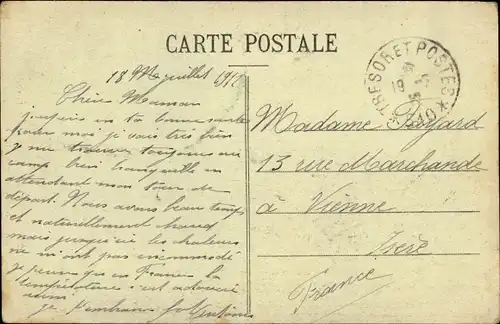 CARTE POSTALE
TRESOR ET POSTES
18 Juillet
Chère Maman
en ta bonne santé
pour moi je vais très bien
je me trouve toujours au
camp bien tranquille en
attendant mon tour de
départ. Nous avons beau temps
et naturellement chaud
mais jusqu'ici les chaleurs
ne m'ont pas incommodé
je pense qu'en France la
température est
Je t'embrasse
Madame
13 rue Marchande
à Vienne
Isère
France